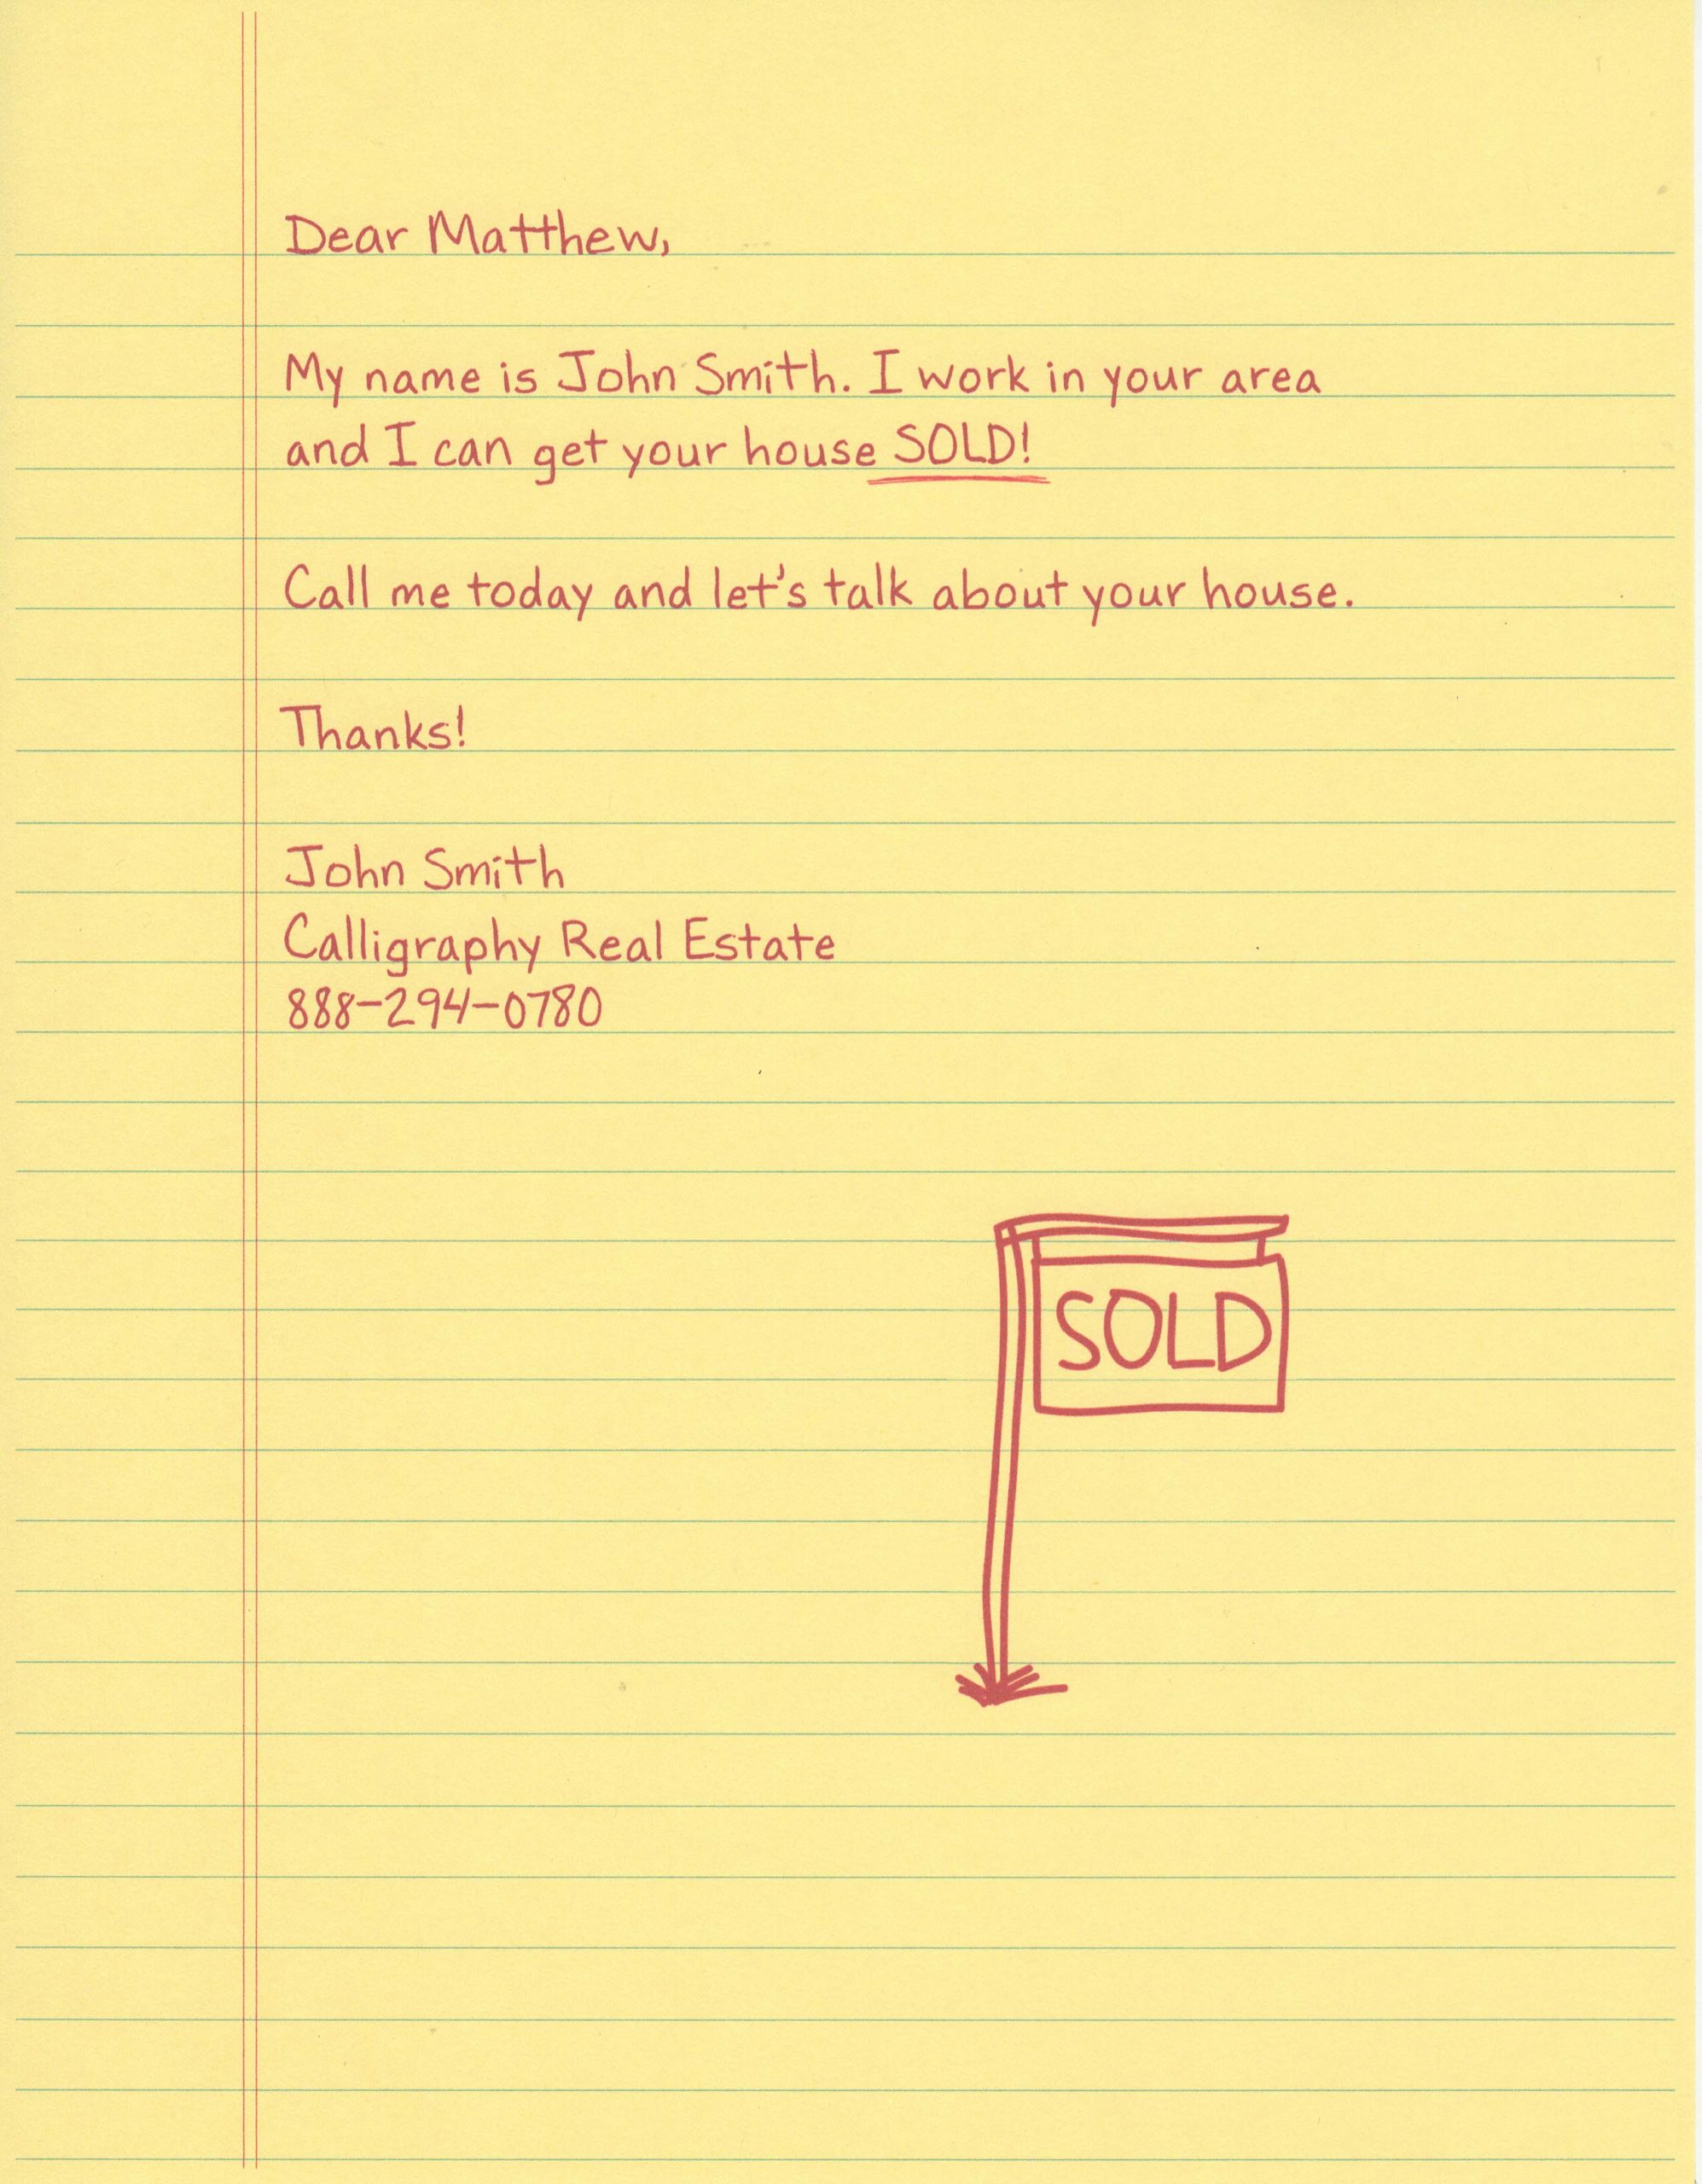 Dear Matthew,
My name is John Smith. I work in your area
and I can get your house SOLD!
Call me today and let's talk about your house.
Thanks!
John Smith
Calligraphy Real Estate
888-294-0780
SOLD